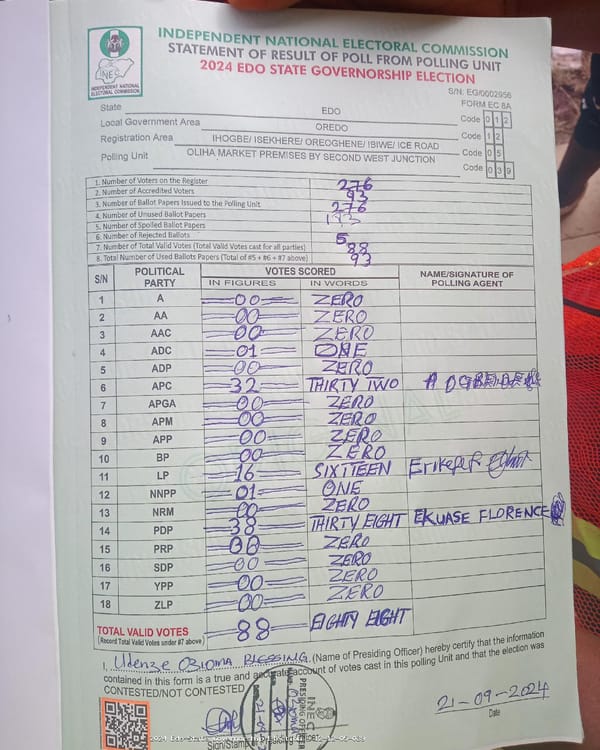 INDEPENDENT NATIONAL ELECTORAL COMMISSION
STATEMENT OF RESULT OF POLL FROM POLLING UNIT
2024 EDO STATE GOVERNORSHIP ELECTION
INEC
INDEPENDENT NATIONAL ELECTORAL COMMISSION
S/N: EG/0002956
FORM EC 8A
State EDO Code 0 1 2
Local Government Area OREDO Code 1 2
Registration Area IHOGBE/ ISEKHERE/ OREOGHENE/ IBIWE/ ICE ROAD Code 0 5
Polling Unit OLIHA MARKET PREMISES BY SECOND WEST JUNCTION Code 0 3 9
1. Number of Voters on the Register 276
2. Number of Accredited Voters 93
3. Number of Ballot Papers Issued to the Polling Unit 276
4. Number of Unused Ballot Papers 183
5. Number of Spoiled Ballot Papers
6. Number of Rejected Ballots 5
7. Number of Total Valid Votes (Total Valid Votes cast for all parties) 88
8. Total Number of Used Ballots Papers (Total of #5 + #6 + #7 above) 93
S/N POLITICAL PARTY VOTES SCORED NAME/SIGNATURE OF POLLING AGENT
IN FIGURES IN WORDS
1 A 00 ZERO
2 AA 00 ZERO
3 AAC 00 ZERO
4 ADC 01 ONE
5 ADP 00 ZERO
6 APC 32 THIRTY TWO
7 APGA 00 ZERO
8 APM 00 ZERO
9 APP 00 ZERO
10 BP 00 ZERO
11 LP 16 SIXTEEN
12 NNPP 01 ONE
13 NRM 00 ZERO
14 PDP 38 THIRTY EIGHT EKUASE FLORENCE
15 PRP 00 ZERO
16 SDP 00 ZERO
17 YPP 00 ZERO
18 ZLP 00 ZERO
TOTAL VALID VOTES 88 EIGHTY EIGHT
(Record Total Valid Votes under #7 above)
I, Udenze Obioma BLESSING (Name of Presiding Officer) hereby certify that the information
contained in this form is a true and accurate account of votes cast in this polling Unit and that the election was
CONTESTED/NOT CONTESTED
INEC
PRESIDING OFFICER
21-09-2024
Date
Sign/Stamp